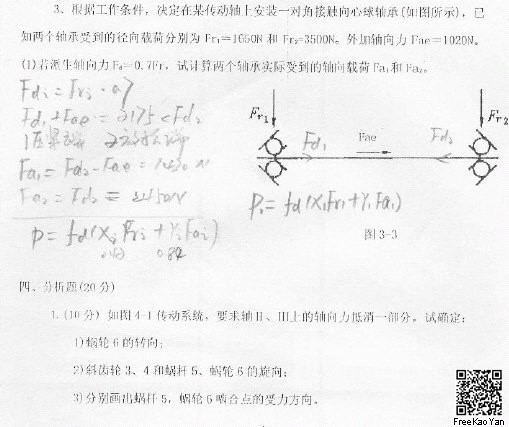 3. 根据工作条件，决定在某传动轴上安装一对角接触向心球轴承(如图所示)，已
知两个轴承受到的径向载荷分别为 Fr₁=1650N 和 Fr₂=3500N。外加轴向力 Fae=1020N。
(1)若派生轴向力 Fₐ=0.7Fr，试计算两个轴承实际受到的轴向载荷 Fa₁和 Fa₂。
Fd₂=Fr₂·0.7
Fd₁+Fae=2175<Fd₂
1压紧端 2放松端
Fa₁=Fd₂-Fae=1430N
Fa₂=Fd₂=2450N
P=fd(X₂Fr₂+Y₂Fa₂)
Fr₁
Fr₂
Fd₁
Fae
Fd₂
P₁=fd(X₁Fr₁+Y₁Fa₁)
图 3-3
四、分析题(20分)
1.(10分) 如图 4-1 传动系统，要求轴Ⅱ、Ⅲ上的轴向力抵消一部分。试确定：
1)蜗轮 6 的转向；
2)斜齿轮 3、4 和蜗杆 5、蜗轮 6 的旋向；
3)分别画出蜗杆 5，蜗轮 6 啮合点的受力方向。
FreeKaoYan